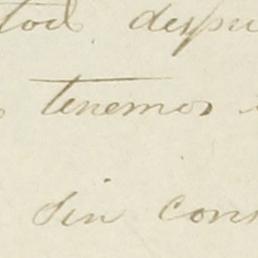 tod despu
tenemos
sin cons